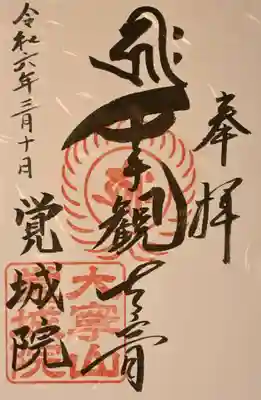 奉拝
千手観世音
覚城院
令和六年三月十日
大寧山